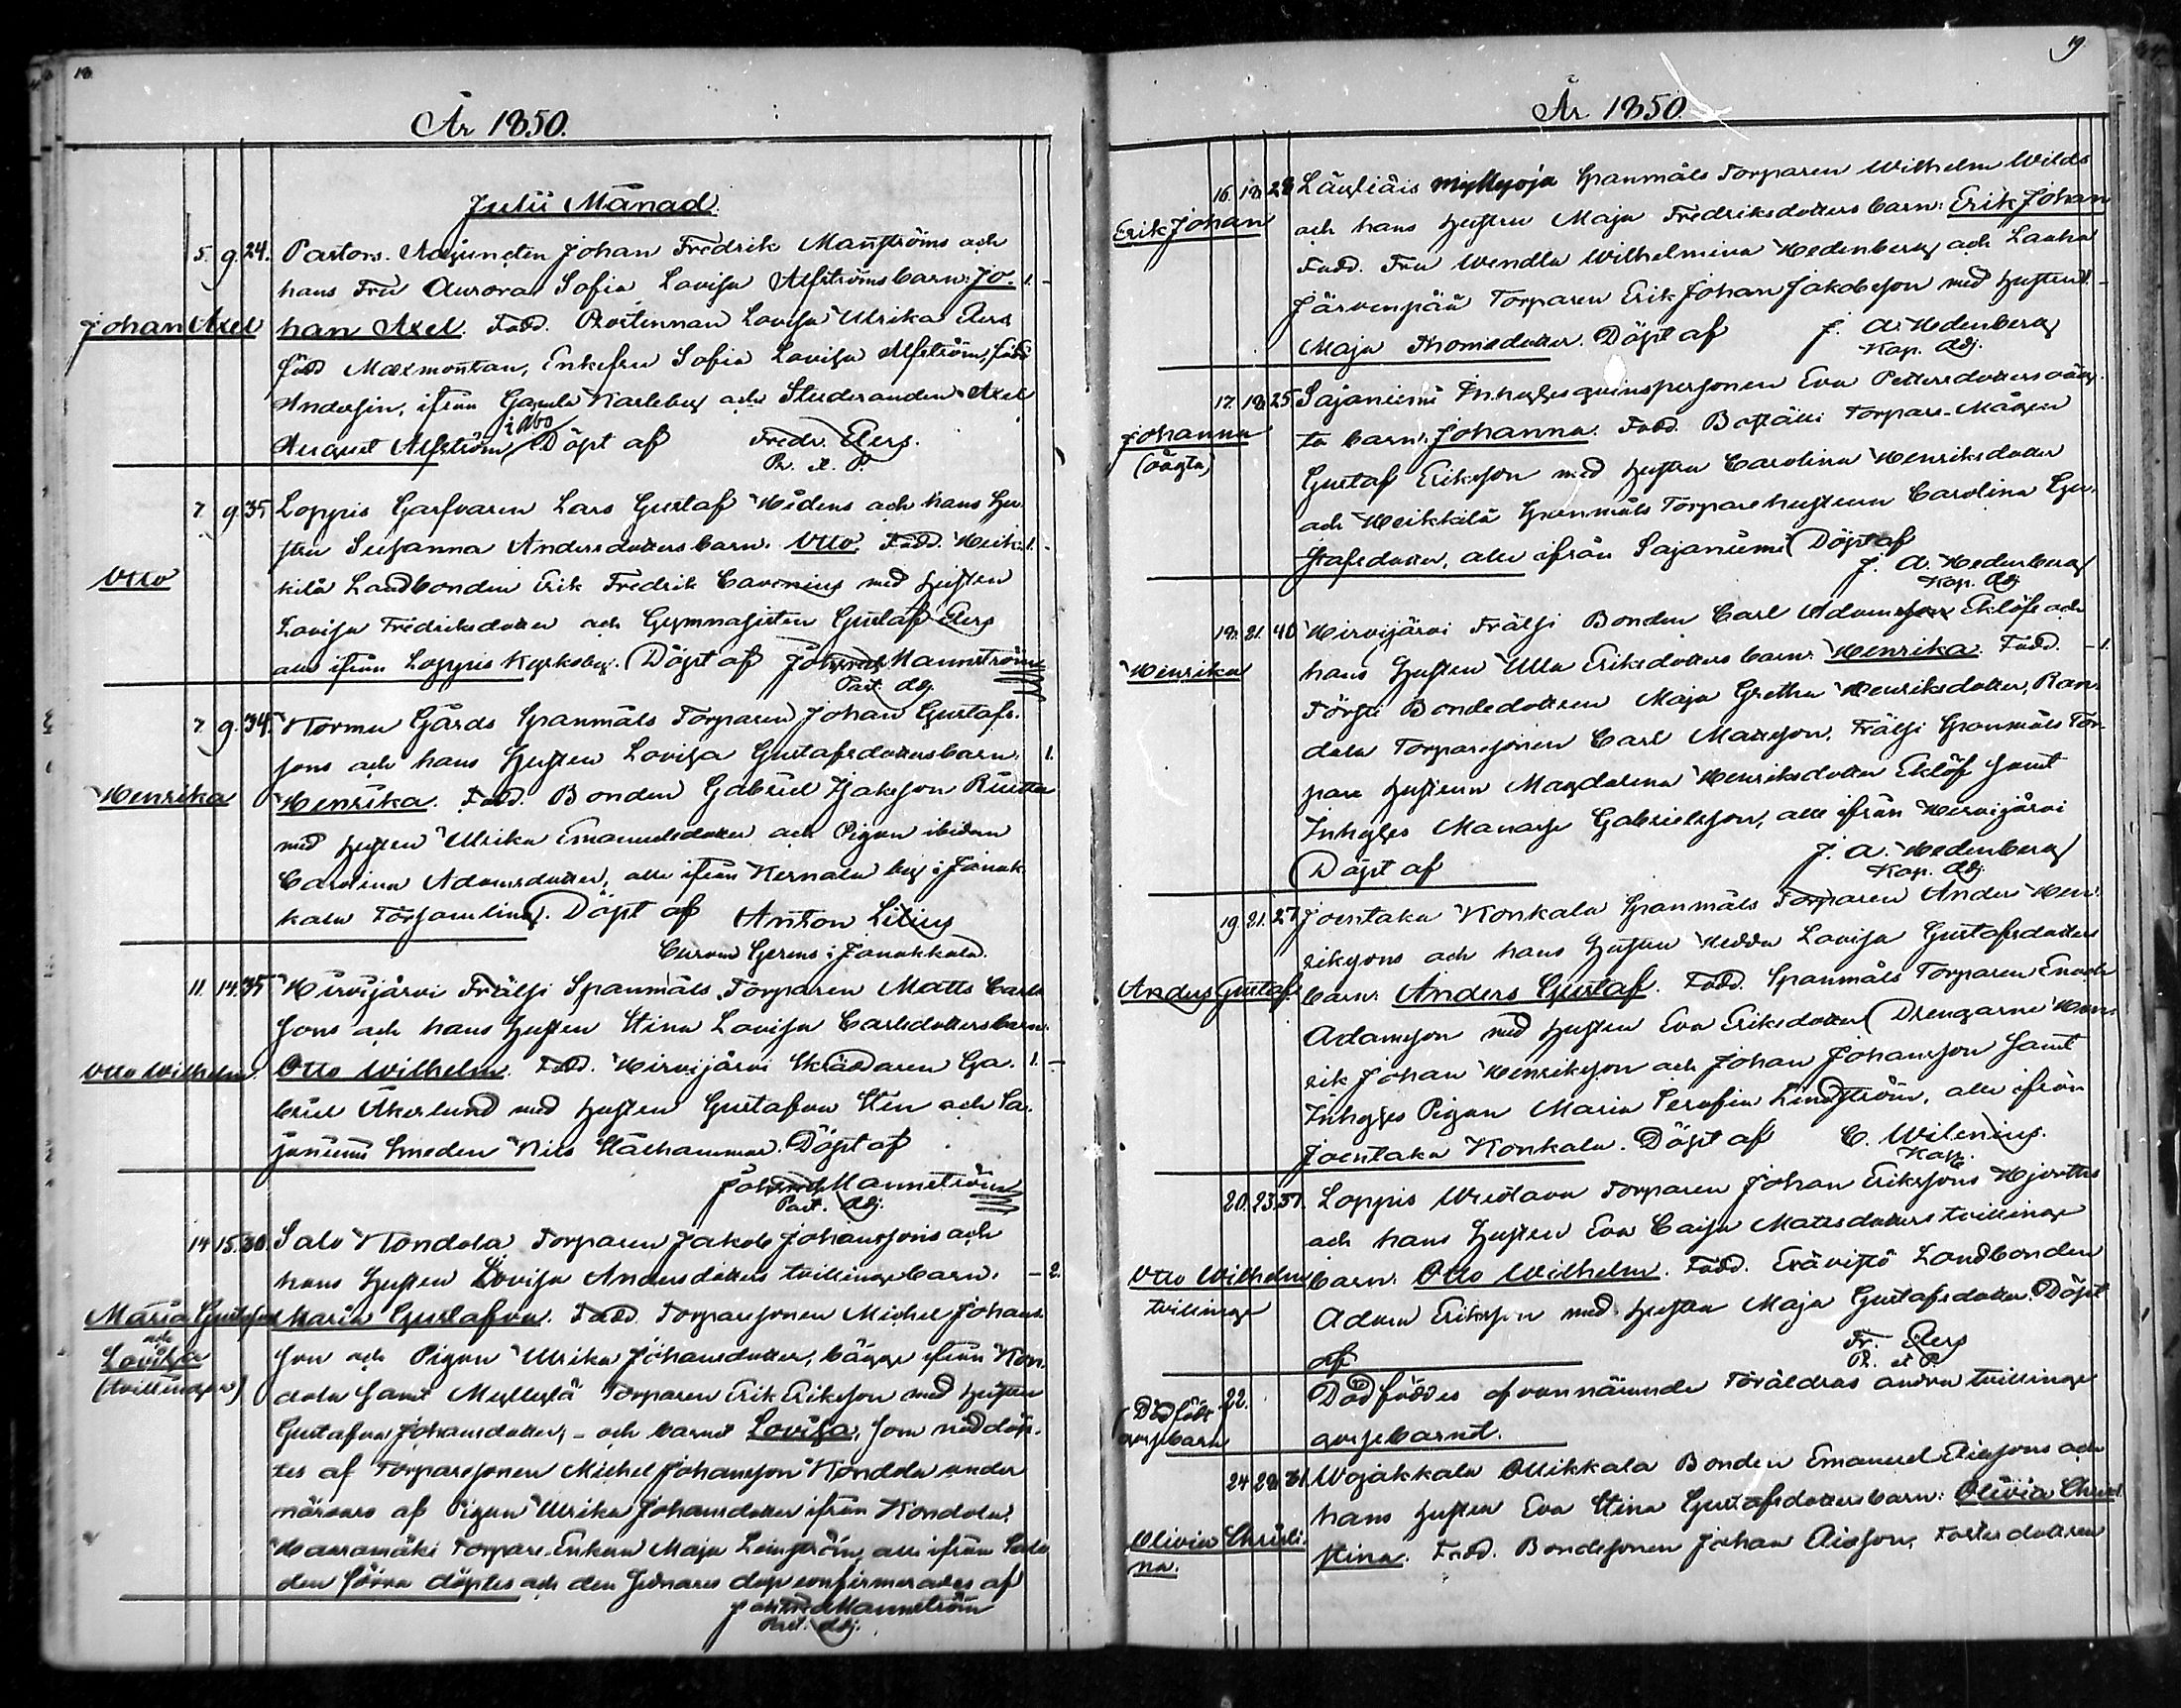 18.
År 1850.
Julii Månad.
5. 9. 24. Pastors Adjuncten Johan Fredrik Manströms och
hans Fru Aurora Sofia Lovisa Alfströms barn: Jo- 1. -
Johan Axel
han Axel. Fadd. Prostinnan Lovisa Ulrika Aers
född Mæxmontan, Enkefru Sofia Lovisa Alfström, född
Andersin, ifrån Gamla Karleby och Studeranden Axel
i Åbo
August Alfström, Döpt af Fredr. Aers.
Pr. et P.
7. 9. 35. Loppis Garfvaren Lars Gustaf Widens och hans Hu-
stru Susanna Andersdotters barn: Otto. Fadd. Heik- 1. -
Otto
kilä Landbonden Erik Fredrik Cavonius med hustru
Lovisa Fredriksdotter och Gymnasisten Gustaf Aers
alla ifrån Loppis Kyrkoby. Döpt af Joh. Fred. Mannström
Past. Adj.
7. 9. 34. Normu Gårds Spanmåls Torparen Johan Gustafs-
sons och hans Hustru Lovisa Gustafsdotters barn: 1.
Henrika
Henrika. Fadd. Bonden Gabriel Isaksson
med hustru Ulrika Emanuelsdotter och Pigan ibidem
Carolina Adamsdotter, alla ifrån Kernala by i Janak-
kala Församling. Döpt af Anton Lilius
Curam Gerens i Janakkala.
11. 14. 35. Hirvijärvi Frälsi Spanmåls Torparen Matts Carls-
sons och hans Hustru Stina Lovisa Carlsdotters barn:
Otto Wilhelm.
Otto Wilhelm. Fadd. Hirvijärvi Skräddaren Ga- 1. -
briel Åkerlund med hustru Gustafva Sten och Sa-
janiemi Smeden Nils Stålhammar. Döpt af
Joh. Fred. Mannström
Past. Adj.
14. 15. 30. Salo Kondola Torparen Jakob Johanssons och
hans Hustru Lovisa Andersdotters tvillingebarn: - 2.
Maria Gustafva
och
Lovisa
(tvillingar)
Maria Gustafva. Fadd. Torparesonen Michel Johans-
son och Pigan Ulrika Johansdotter, bägge ifrån Kon-
dola samt Myllylä Torparen Erik Eriksson med hustru
Gustafva Johansdotter, - och barnet Lovisa, som nöddöp-
tes af Torparesonen Michel Johansson Kondola under
närvaro af Pigan Ulrika Johansdotter ifrån Kondola,
Haaramäki Torpare Enkan Maja Lönström alla ifrån Salo
den förra döptes och den sednares dop confirmerades af
Joh. Fred. Mannström
Past. Adj.
19
År 1850.
16. 18. 28. Läyliäis Myllyoja Spanmåls Torparen Wilhelm Wilds
Erik Johan
och hans hustru Maja Fredriksdotters barn: Erik Johan
Fadd. Fru Wendla Wilhelmina Hedenberg och Lauha
Järvenpää Torparen Erik Johan Jakobsson med hustru 1. -
Maja Thomedotter. Döpt af J. A. Hedenberg
Kap. Adj.
17. 18. 25. Sajaniemi Inhyses qvinspersonen Eva Pettersdotters oäg-
Johanna
(oägta)
ta barn: Johanna. Fadd. Torpare-Mågen
Gustaf Eriksson med hustru Carolina Henriksdotter
och Heikkilä Spanmåls Torparehustrun Carolina Gu-
stafsdotter, alla ifrån Sajaniemi. Döpt af
J. A. Hedenberg
Kap. Adj.
18. 21. 40. Hirvijärvi Frälsi Bonden Carl Adamsson Eklöfs och
Henrika
hans Hustru Ulla Eriksdotters barn: Henrika. Fadd. - 1.
Förfti Bondedottren Maja Gretha Henriksdotter, Ran-
dala Torparesonen Carl Mattsson, Frälsi Spanmåls Tor-
pare hustrun Magdalena Henriksdotter Eklöf samt
Inhyses Manasse Gabrielsson, alla ifrån Hirvijärvi
Döpt af J. A. Hedenberg
Kap. Adj.
19. 21. 27. Joentaka Konkala Spanmåls Torparen Anders Hen-
rikssons och hans Hustru Hedda Lovisa Gustafsdotters
Anders Gustaf
barn: Anders Gustaf. Fadd. Spanmåls Torparen Enoch
Adamsson med hustru Eva Eriksdotter, Drengarne Hen-
rik Johan Henriksson och Johan Johansson samt
Inhyses Pigan Maria Serafia Lindström, alla ifrån
Joentaka Konkala. Döpt af C. Wilenius.
Kapp.
20. 23. 37. Loppis Torparen Johan Erikssons Hjortts
och hans Hustru Eva Caisa Mattsdotters tvillinge
Otto Wilhelm
tvillinge
barn: Otto Wilhelm. Fadd. Erävistö Landbonden
Adam Eriksson med hustru Maja Gustafsdotter. Döpt
af Fr. Aers
Pr. et P.
(Dödfödt
gossebarn
22. Dödföddes ofvannämnde Föräldras andra tvillinge
gossebarnet.
24. 28. 31. Wojakkala Ollikkala Bonden Emanuel Eliessons och
hans hustru Eva Stina Gustafsdotters barn: Olivia Chri-
Olivia Christi-
na.
stina. Fadd. Bondesonen Johan Aisson, Fosterdottren